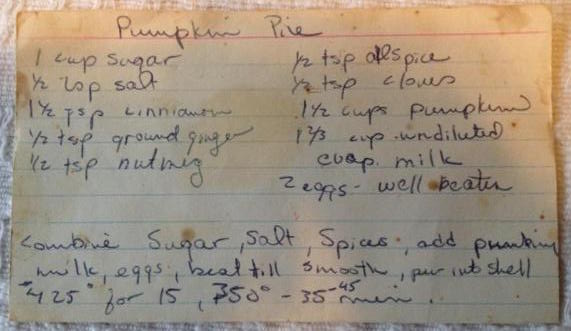 Pumpkin Pie
1 cup sugar
1/2 tsp salt
1 1/2 tsp cinniamon
1/2 tsp ground ginger
1/2 tsp nutmeg
1/2 tsp allspice
1/2 tsp cloves
1 1/2 cups pumpkin
1 2/3 cup undiluted
evap. milk
2 eggs - well beaten
Combine Sugar, Salt, Spices, add pumpkin
milk, eggs, beat till smooth, pur into shell
425° for 15, 350° - 35-45 min.